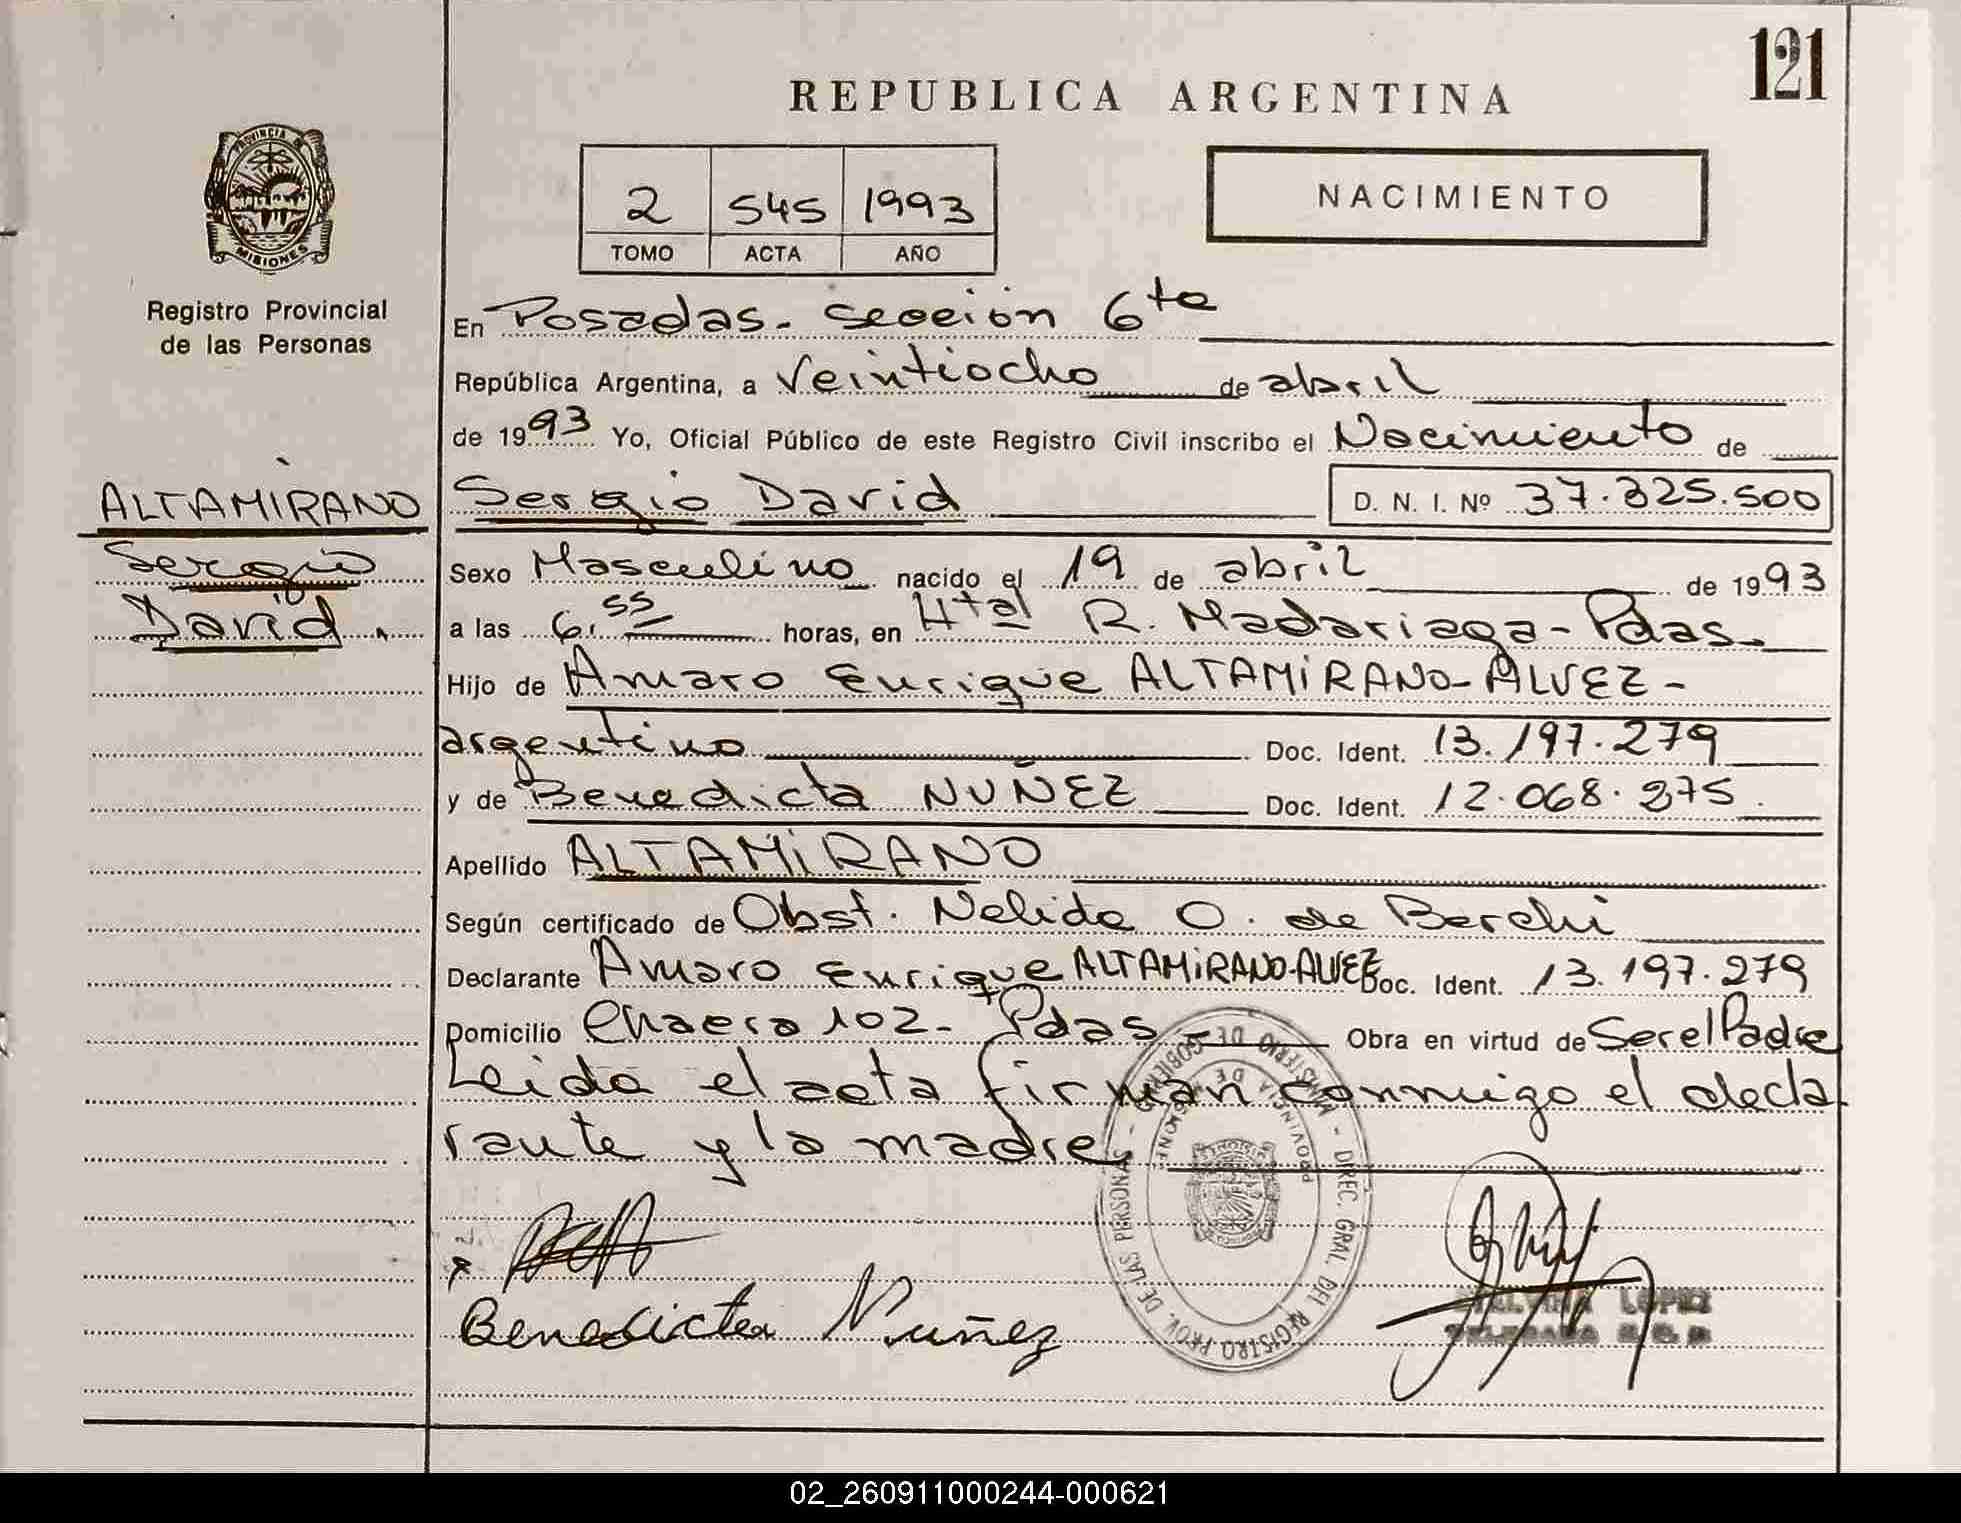 121
REPUBLICA ARGENTINA
PROVINCIA DE
MISIONES
2 545 1993
TOMO ACTA AÑO
NACIMIENTO
Registro Provincial
de las Personas
En Posadas - sección 6ta
República Argentina, a Veintiocho de abril
de 1993 Yo, Oficial Público de este Registro Civil inscribo el Nacimiento de
ALTAMIRANO
Sergio
David
Sergio David D. N. I. Nº 37.325.500
Sexo Masculino nacido el 19 de abril de 1993
a las 6.55 horas, en Htal R. Madariaga - Pdas.
Hijo de Amaro Enrique ALTAMIRANO-ALVEZ-
argentino Doc. Ident. 13.197.279
y de Benedicta NUÑEZ Doc. Ident. 12.068.275
Apellido ALTAMIRANO
Según certificado de Obst. Nelida O. de Berchi
Declarante Amaro Enrique ALTAMIRANO-ALVEZ Doc. Ident. 13.197.279
Domicilio Chacra 102- Pdas - Obra en virtud de Ser el Padre
Leida el acta firman conmigo el decla
rante y la madre
MINISTERIO DE GOBIERNO - DIREC. GRAL. DEL REGISTRO PROV. DE LAS PERSONAS -
PROVINCIA DE MISIONES
Benedicta Nuñez
LOPEZ
02_260911000244-000621